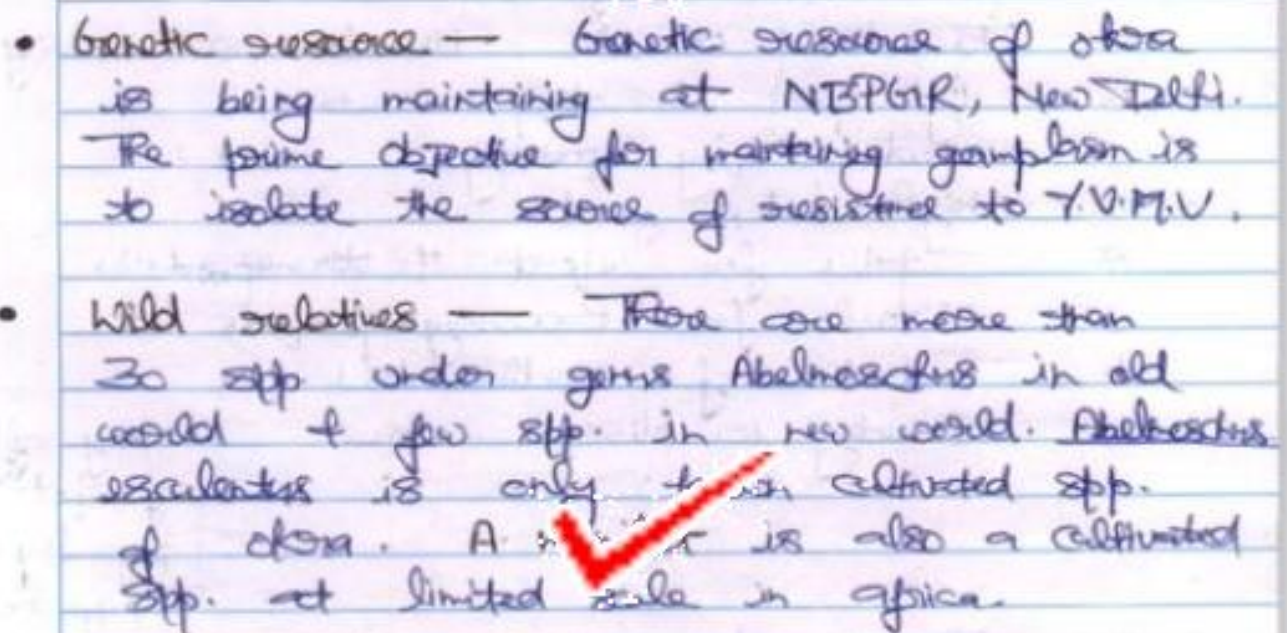 • Genetic resource — Genetic resource of okra
is being maintaining at NBPGR, New Delhi.
The prime objective for maintaining germplasm is
to isolate the source of resistance to Y.V.M.V.
• Wild relatives — There are more than
30 spp under genus Abelmoschus in old
world & few spp. in new world. Abelmoschus
esculentus is only cultivated spp.
of okra. A. is also a cultivated
spp. at limited scale in africa.